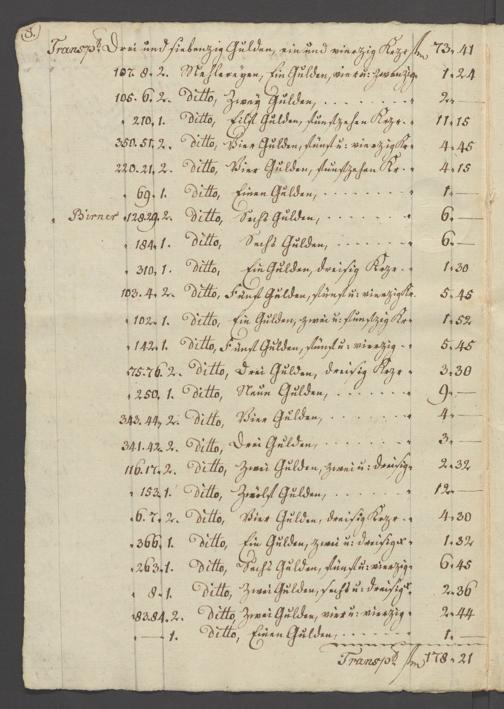 3.
Transp: Drei und siebenzig Gulden, ein und vierzig Krez fl 73. 41
107. 8. 2. Gulden, vier u: zwanzig 1. 24
105. 6. 2. Ditto, Zwey Gulden, 2.—
210. 1. Ditto, Eilf Gulden, funfzehen Krz. 11. 15
350. 51. 2. Ditto, Vier Gulden, fünf u: vierzig Kr 4. 45
220. 21. 2. Ditto, Vier Gulden, funfzehen Kr. 4. 15
69. 1. Ditto, Einen Gulden, 1.—
Birner 128 29. 2. Ditto, Sechs Gulden, 6.—
184. 1. Ditto, Sechs Gulden, 6.—
310. 1. Ditto, Ein Gulden, dreisig Krz. 1. 30
103. 4. 2. Ditto, Fünf Gulden, fünf u: vierzig Kr. 5. 45
102. 1. Ditto, Ein Gulden, zwei u: funfzig Kr 1. 52
142. 1. Ditto, Fünf Gulden, fünf u: vierzig 5. 45
75. 76. 2. Ditto, Drei Gulden, dreisig Krz 3. 30
250. 1. Ditto, Neun Gulden, 9.—
343. 44. 2. Ditto, Vier Gulden, 4.—
341. 42. 2. Ditto, Drei Gulden, 3.—
116. 17. 2. Ditto, Zwei Gulden, zwei u: dreisig 2. 32
153. 1. Ditto, Zwölf Gulden, 12.—
6. 7. 2. Ditto, Vier Gulden, dreisig Krz. 4. 30
366. 1. Ditto, Ein Gulden, zwei u: dreisig 1. 32
263. 1. Ditto, Sechs Gulden, fünf u: vierzig 6. 45
8. 1. Ditto, Zwei Gulden, sechs u: dreisig 2. 36
83. 84. 2. Ditto, Zwei Gulden, vier u: vierzig 2. 44
— 1. Ditto, Einen Gulden, 1.—
Transp: fl 178. 21